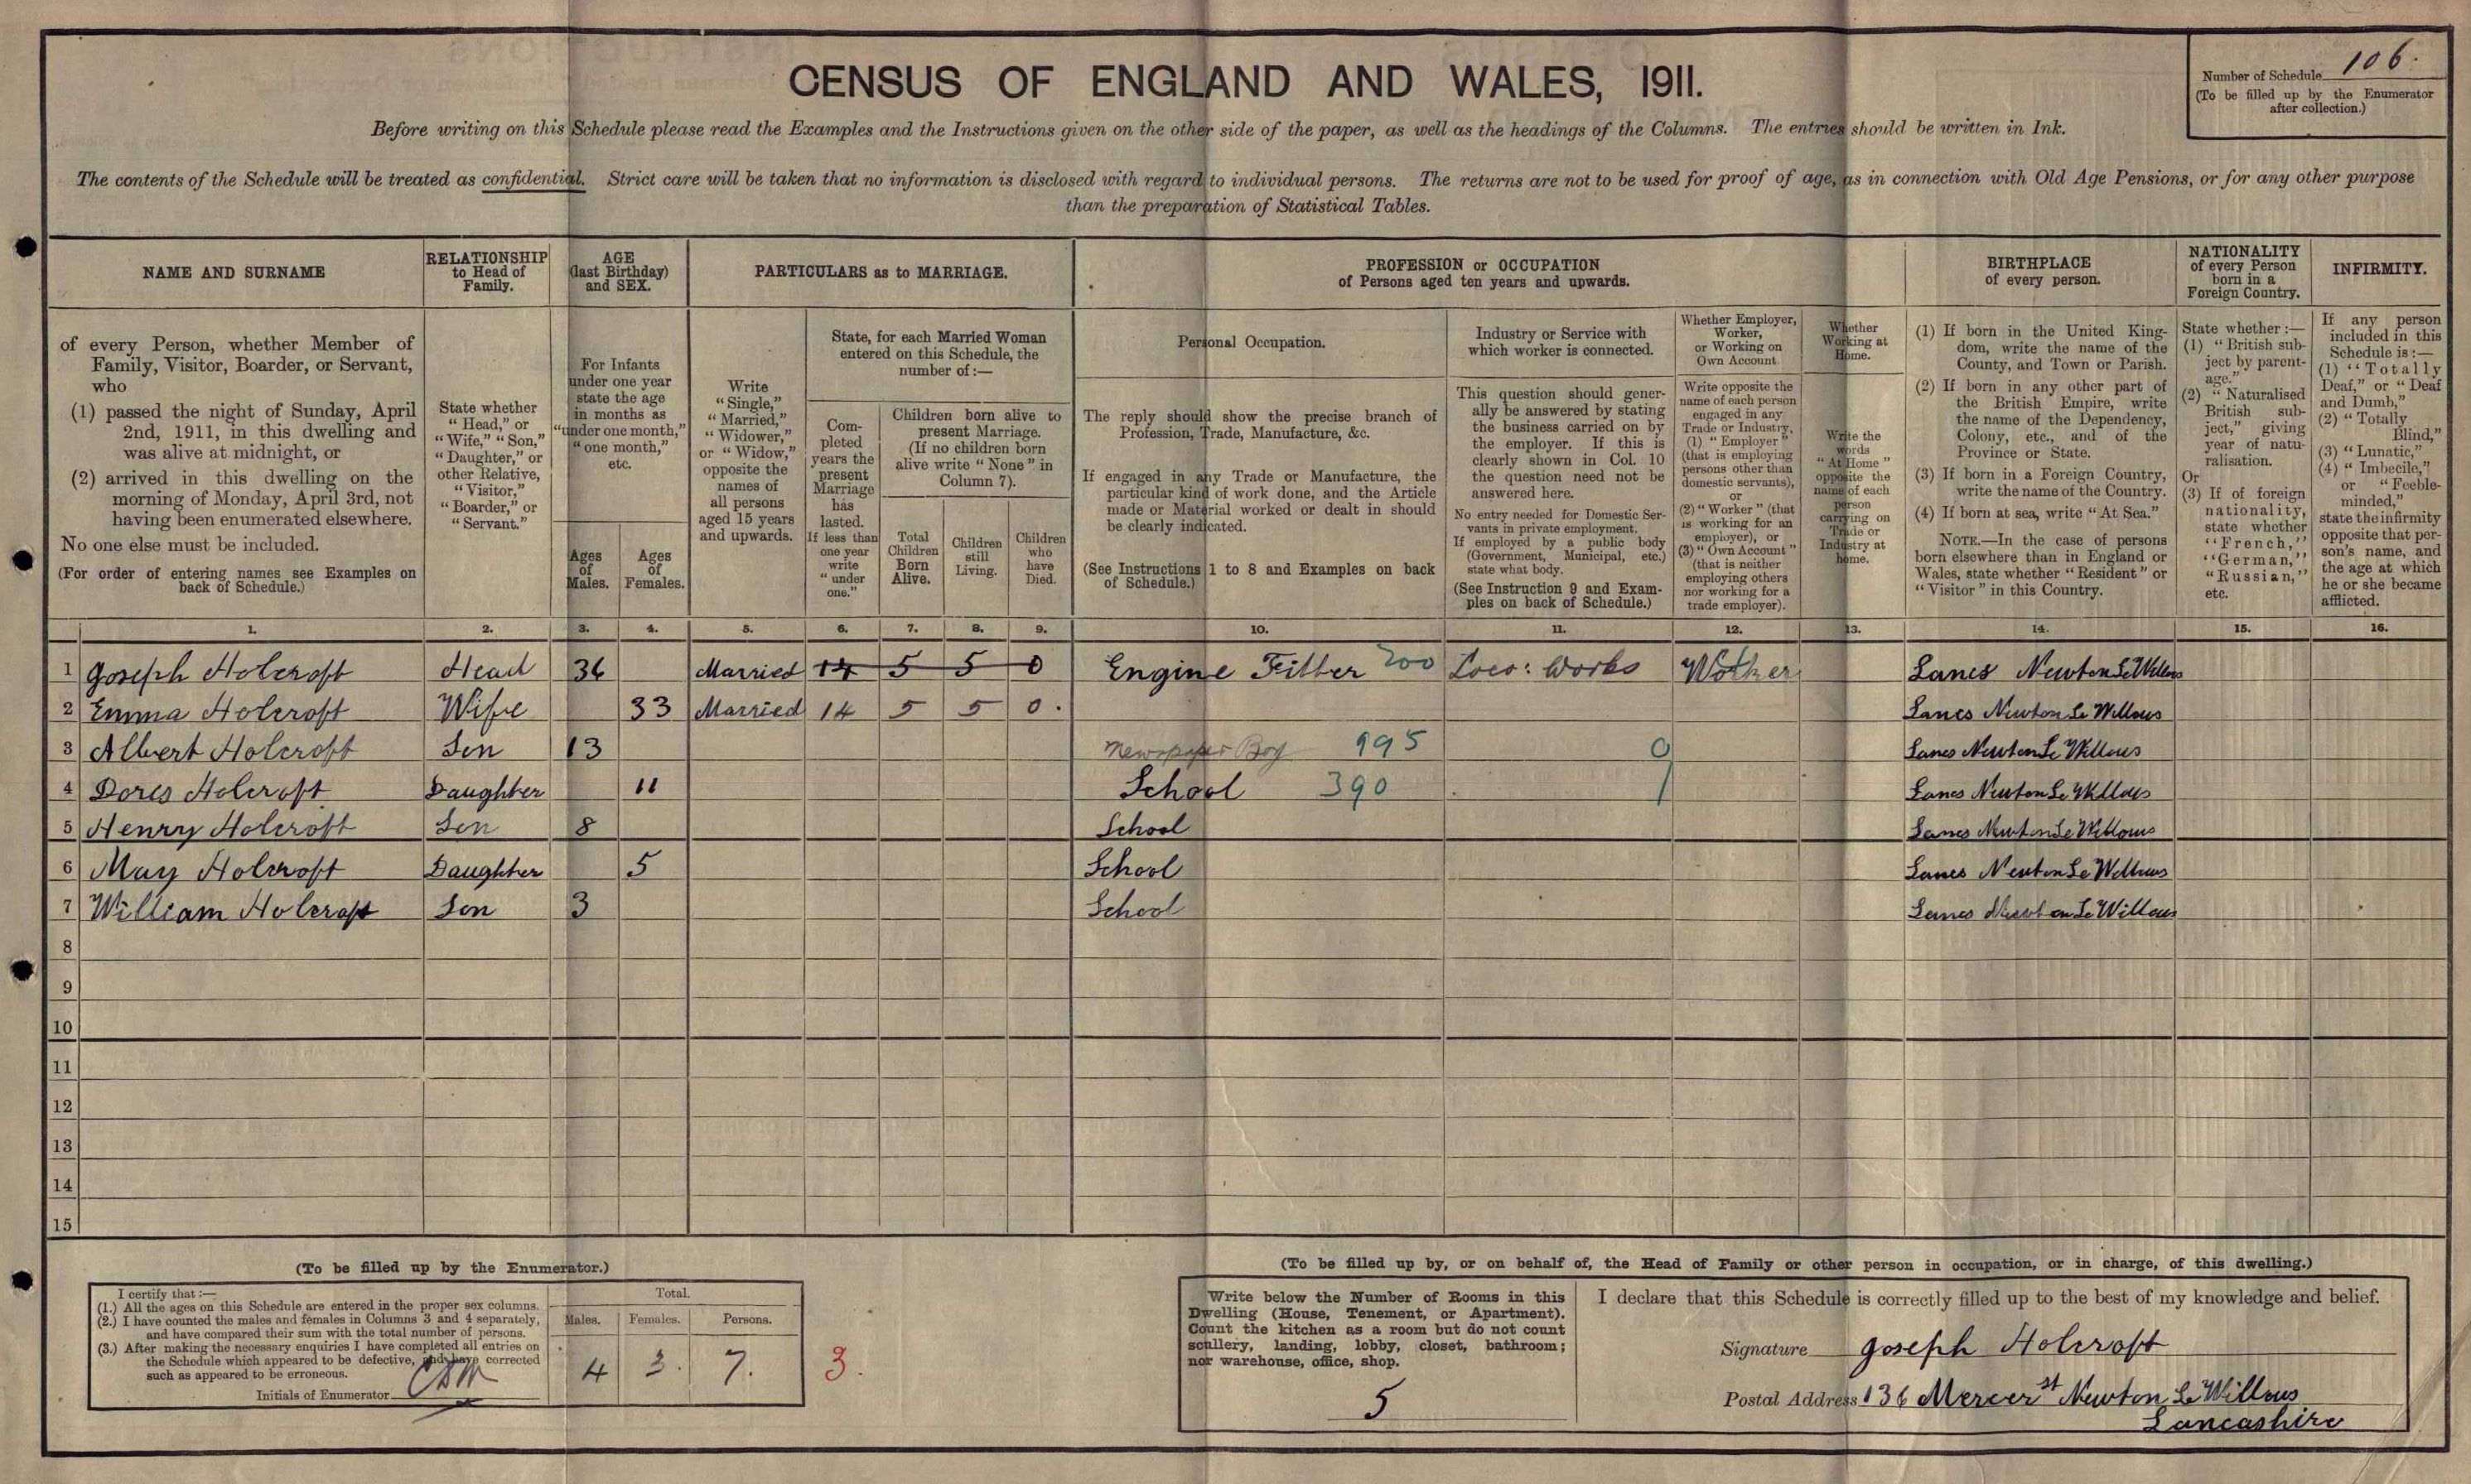 CENSUS OF ENGLAND AND WALES, 1911.
Number of Schedule 106.
(To be filled up by the Enumerator
after collection.)
Before writing on this Schedule please read the Examples and the Instructions given on the other side of the paper, as well as the headings of the Columns. The entries should be written in Ink.
The contents of the Schedule will be treated as confidential. Strict care will be taken that no information is disclosed with regard to individual persons. The returns are not to be used for proof of age, as in connection with Old Age Pensions, or for any other purpose
than the preparation of Statistical Tables.
NAME AND SURNAME
of every Person, whether Member of
Family, Visitor, Boarder, or Servant,
who
(1) passed the night of Sunday, April
2nd, 1911, in this dwelling and
was alive at midnight, or
(2) arrived in this dwelling on the
morning of Monday, April 3rd, not
having been enumerated elsewhere.
No one else must be included.
(For order of entering names see Examples on
back of Schedule.)
RELATIONSHIP
to Head of
Family.
State whether
"Head," or
"Wife," "Son,"
"Daughter," or
other Relative,
"Visitor,"
"Boarder," or
"Servant."
AGE
(last Birthday)
and SEX.
For Infants
under one year
state the age
in months as
"under one month,"
"one month,"
etc.
Ages
of
Males.
Ages
of
Females.
PARTICULARS as to MARRIAGE.
Write
"Single,"
"Married,"
"Widower,"
or "Widow,"
opposite the
names of
all persons
aged 15 years
and upwards.
State, for each Married Woman
entered on this Schedule, the
number of:—
Com-
pleted
years the
present
Marriage
has
lasted.
If less than
one year
write
"under
one."
Children born alive to
present Marriage.
(If no children born
alive write "None" in
Column 7).
Total
Children
Born
Alive.
Children
still
Living.
Children
who
have
Died.
PROFESSION or OCCUPATION
of Persons aged ten years and upwards.
Personal Occupation.
The reply should show the precise branch of
Profession, Trade, Manufacture, &c.
If engaged in any Trade or Manufacture, the
particular kind of work done, and the Article
made or Material worked or dealt in should
be clearly indicated.
(See Instructions 1 to 8 and Examples on back
of Schedule.)
Industry or Service with
which worker is connected.
This question should gener-
ally be answered by stating
the business carried on by
the employer. If this is
clearly shown in Col. 10
the question need not be
answered here.
No entry needed for Domestic Ser-
vants in private employment.
If employed by a public body
(Government, Municipal, etc.)
state what body.
(See Instruction 9 and Exam-
ples on back of Schedule.)
Whether Employer,
Worker,
or Working on
Own Account
Write opposite the
name of each person
engaged in any
Trade or Industry,
(1) "Employer"
(that is employing
persons other than
domestic servants),
or
(2) "Worker" (that
is working for an
employer), or
(3) "Own Account"
(that is neither
employing others
nor working for a
trade employer).
Whether
Working at
Home.
Write the
words
"At Home"
opposite the
name of each
person
carrying on
Trade or
Industry at
home.
BIRTHPLACE
of every person.
(1) If born in the United King-
dom, write the name of the
County, and Town or Parish.
(2) If born in any other part of
the British Empire, write
the name of the Dependency,
Colony, etc., and of the
Province or State.
(3) If born in a Foreign Country,
write the name of the Country.
(4) If born at sea, write "At Sea."
NOTE.—In the case of persons
born elsewhere than in England or
Wales, state whether "Resident" or
"Visitor" in this Country.
NATIONALITY
of every Person
born in a
Foreign Country.
State whether:—
(1) "British sub-
ject by parent-
age."
(2) "Naturalised
British sub-
ject," giving
year of natu-
ralisation.
Or
(3) If of foreign
nationality,
state whether
"French,"
"German,"
"Russian,"
etc.
INFIRMITY.
If any person
included in this
Schedule is:—
(1) "Totally
Deaf," or "Deaf
and Dumb,"
(2) "Totally
Blind,"
(3) "Lunatic,"
(4) "Imbecile,"
or "Feeble-
minded,"
state the infirmity
opposite that per-
son's name, and
the age at which
he or she became
afflicted.
1. 2. 3. 4. 5. 6. 7. 8. 9. 10. 11. 12. 13. 14. 15. 16.
1 Joseph Holcroft Head 36 Married 14 5 5 0 Engine Fitter 200 Loco: Works Worker Lancs Newton Le Willows
2 Emma Holcroft Wife 33 Married 14 5 5 0. Lancs Newton Le Willows
3 Albert Holcroft Son 13 Newspaper Boy 995 0 Lancs Newton Le Willows
4 Dores Holcroft Daughter 11 School 390 Lancs Newton Le Willows
5 Henry Holcroft Son 8 School Lancs Newton Le Willows
6 May Holcroft Daughter 5 School Lancs Newton Le Willows
7 William Holcroft Son 3 School Lancs Newton Le Willows
8
9
10
11
12
13
14
15
(To be filled up by the Enumerator.)
I certify that:—
(1.) All the ages on this Schedule are entered in the proper sex columns.
(2.) I have counted the males and females in Columns 3 and 4 separately,
and have compared their sum with the total number of persons.
(3.) After making the necessary enquiries I have completed all entries on
the Schedule which appeared to be defective, and have corrected
such as appeared to be erroneous.
Initials of Enumerator
Total.
Males. Females. Persons.
4 3. 7. 3.
(To be filled up by, or on behalf of, the Head of Family or other person in occupation, or in charge, of this dwelling.)
Write below the Number of Rooms in this
Dwelling (House, Tenement, or Apartment).
Count the kitchen as a room but do not count
scullery, landing, lobby, closet, bathroom;
nor warehouse, office, shop.
5
I declare that this Schedule is correctly filled up to the best of my knowledge and belief.
Signature Joseph Holcroft
Postal Address 136 Mercer st Newton Le Willows
Lancashire